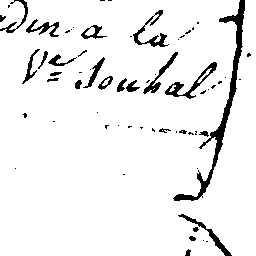 din a la
Vᵉ Souhal